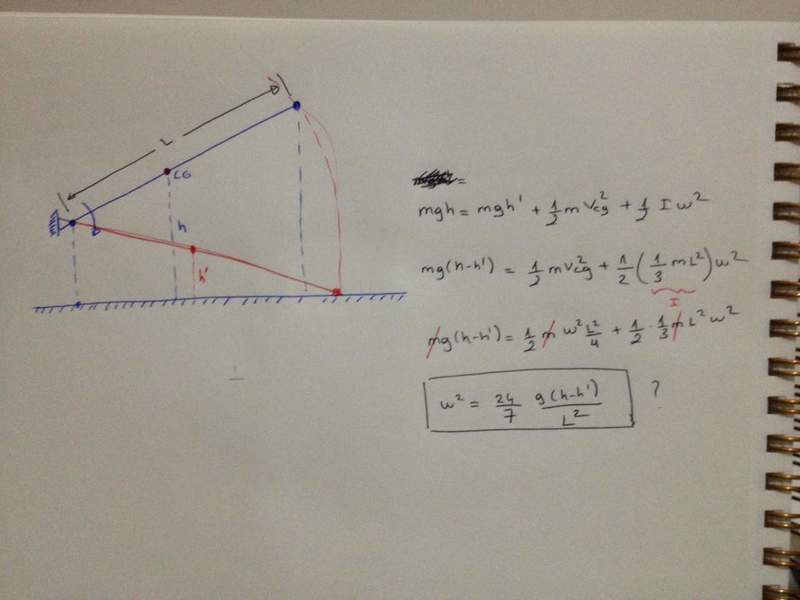 L
CG
h
h'
=
mgh = mgh' + 1/2 m Vcg² + 1/2 I ω²
mg(h-h') = 1/2 m Vcg² + 1/2 (1/3 m L²) ω²
I
mg(h-h') = 1/2 m ω² L²/4 + 1/2 · 1/3 m L² ω²
ω² = 24/7 g(h-h')/L² ?